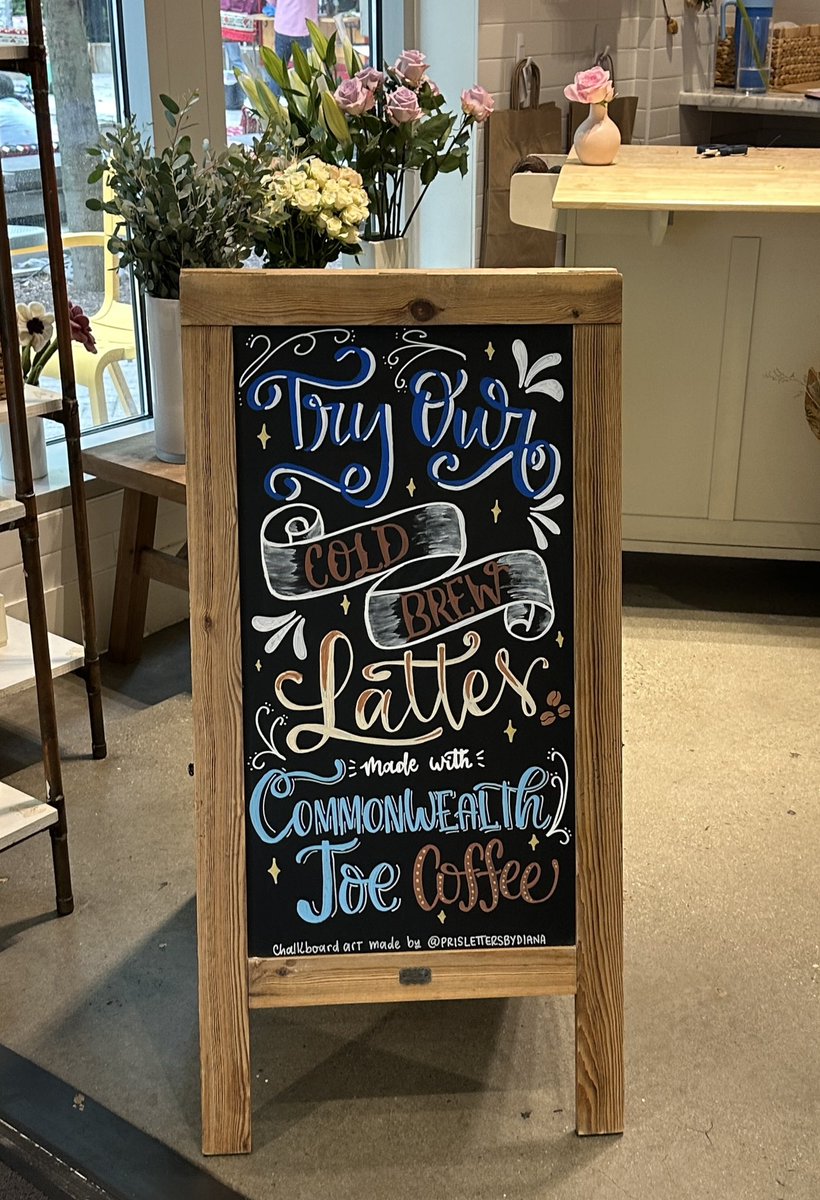 Try Our
COLD
BREW
Lattes
made with
COMMONWEALTh
Joe Coffee
Chalkboard art made by @PRISLETTERSBYDIANA